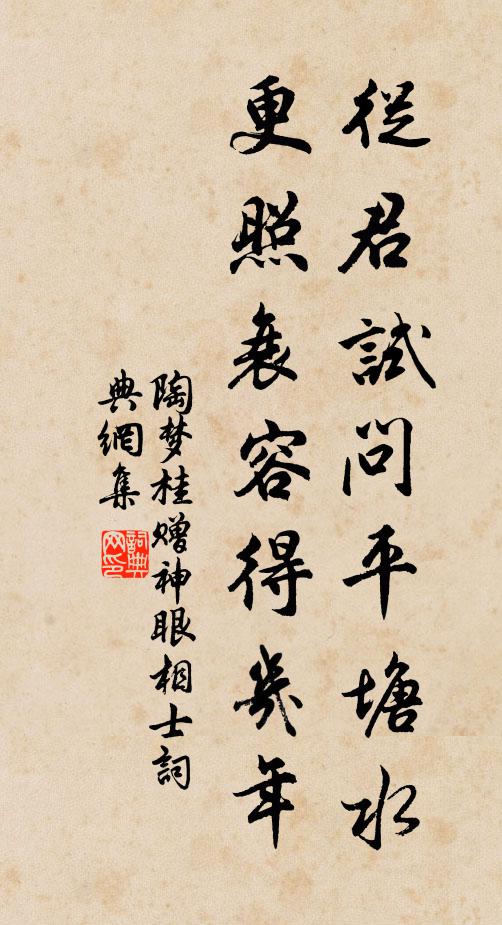 從君試問平塘水
更照衰容得幾年
陶梦桂赠神眼相士詞
典網集
詞典网印